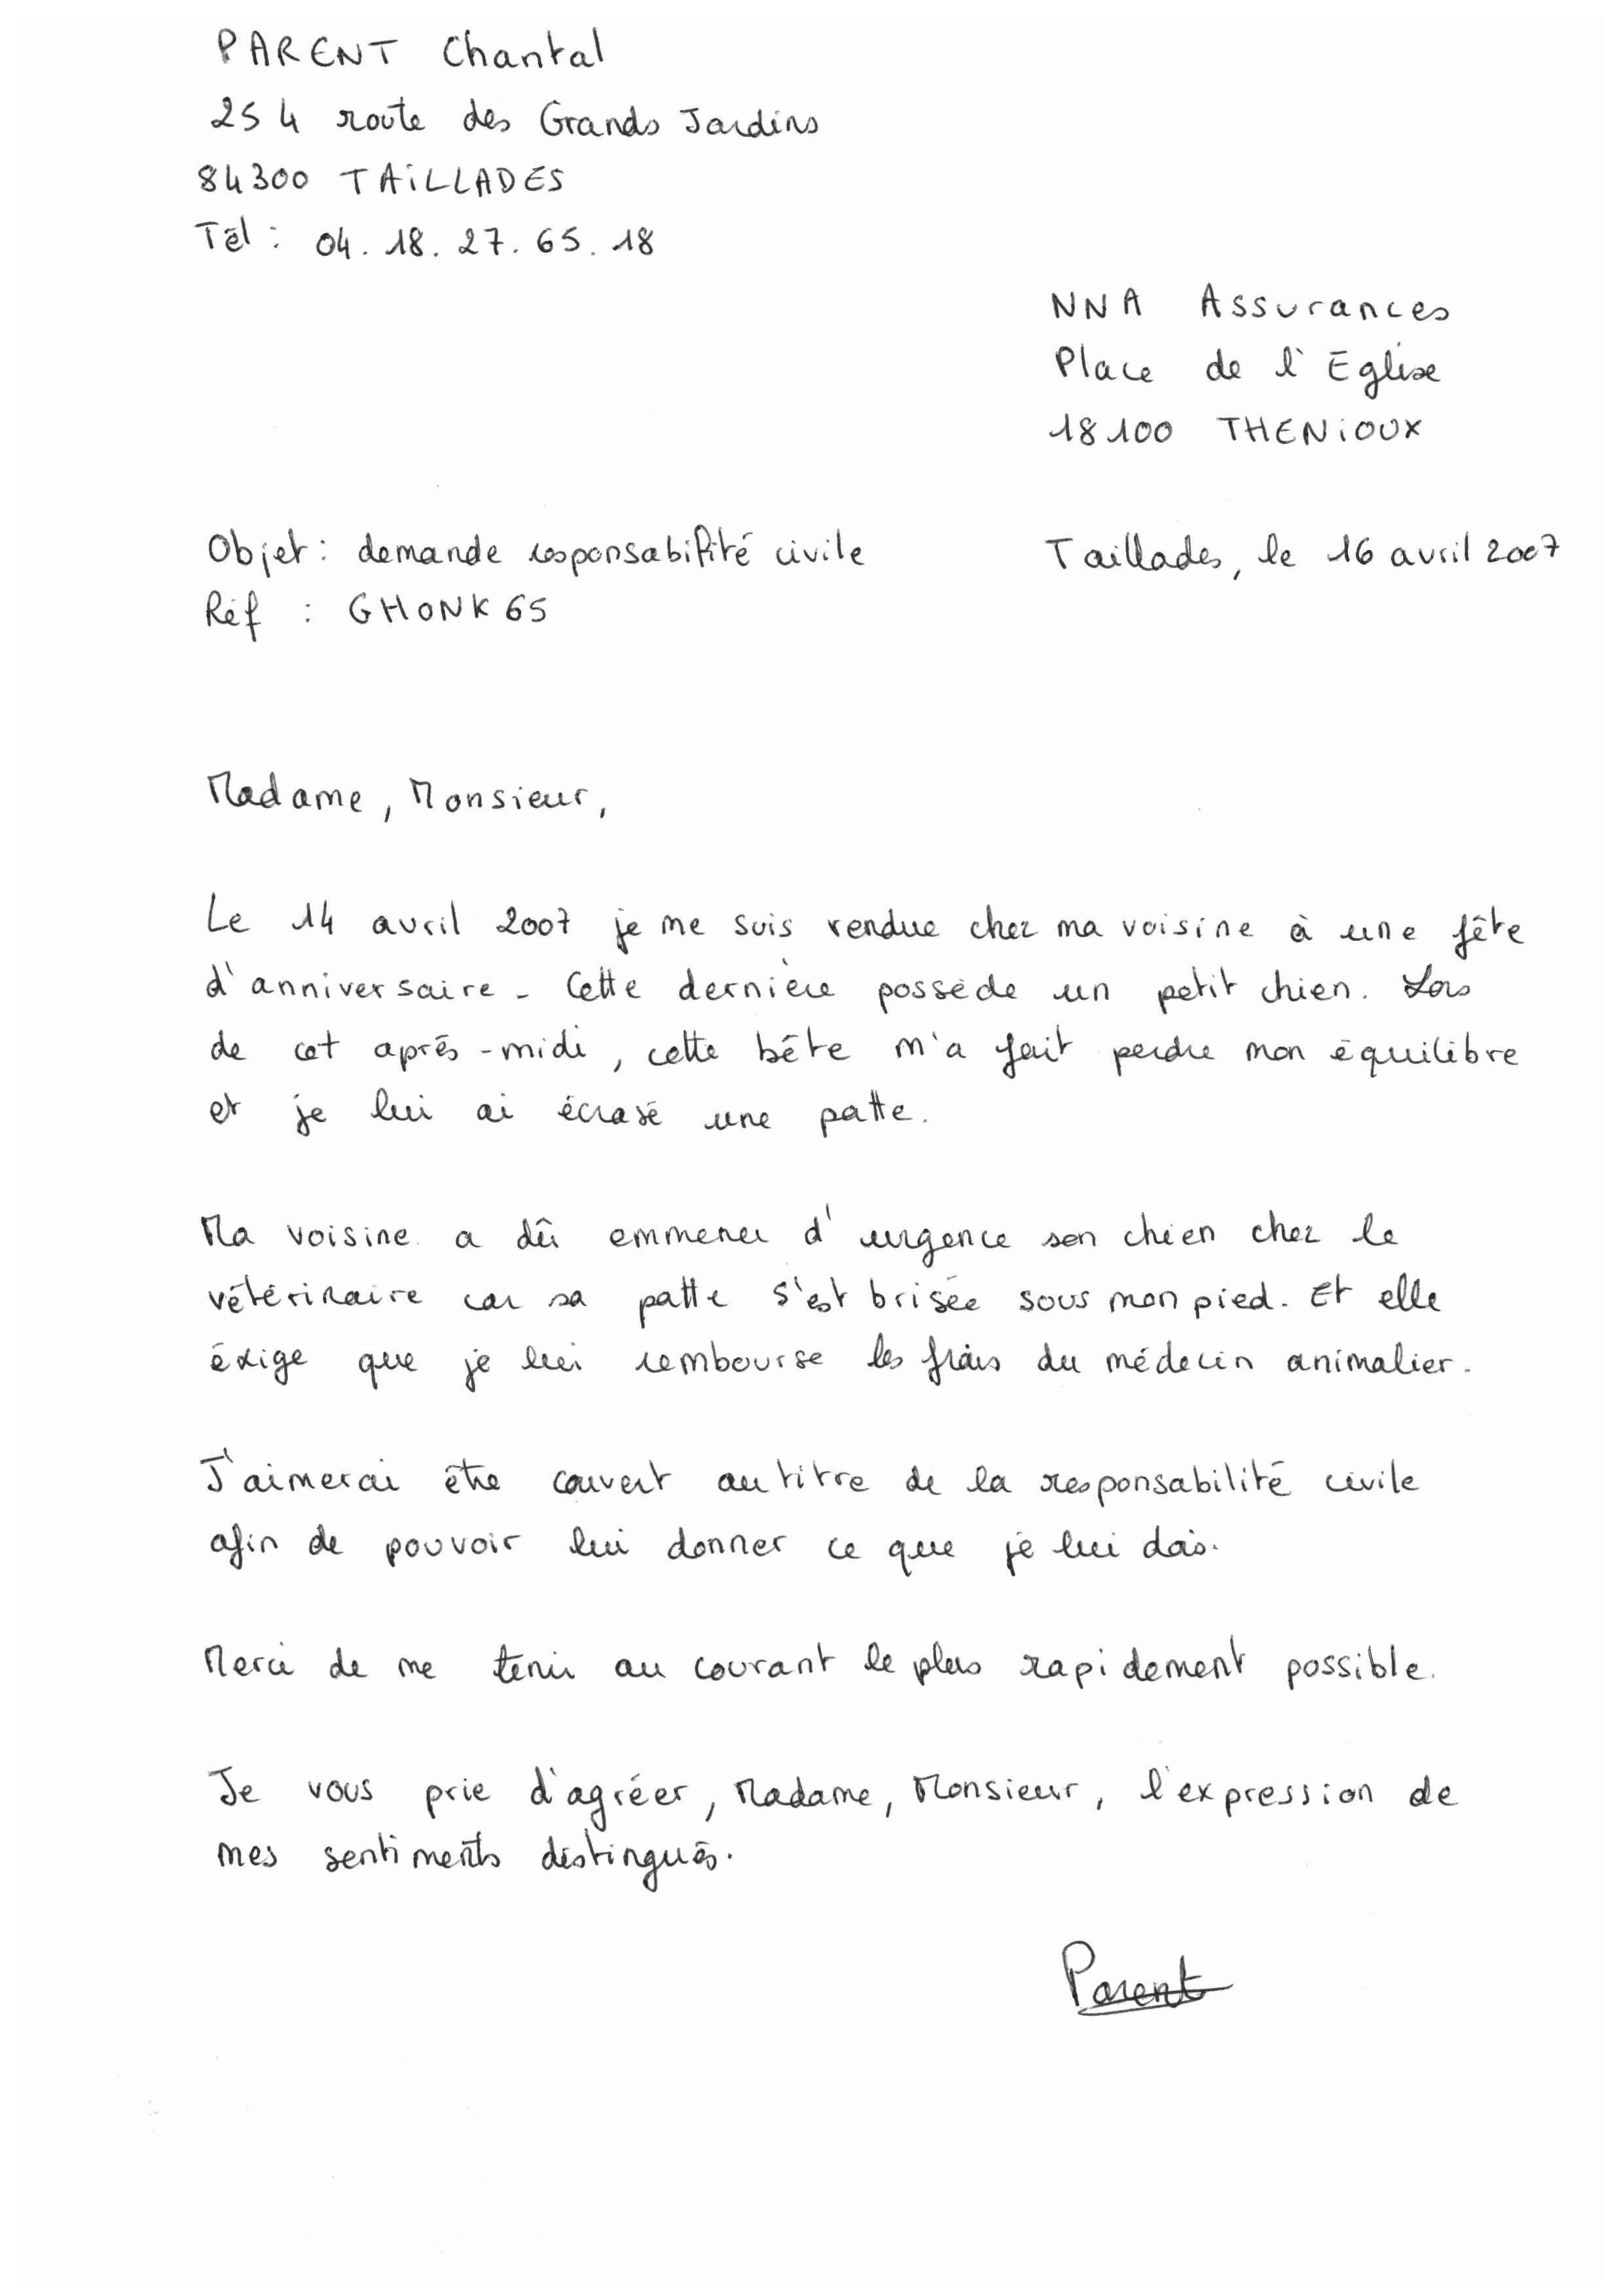 PARENT Chantal
254 route des Grands Jardins
84300 TAILLADES
Tél : 04. 18. 27. 65. 18
NNA Assurances
Place de l'Eglise
18100 THENIOUX
Objet : demande responsabilité civile
Taillades, le 16 avril 2007
Réf : GHONK65
Madame, Monsieur,
Le 14 avril 2007 je me suis rendue chez ma voisine à une fête
d'anniversaire. Cette dernière possède un petit chien. Lors
de cet après-midi, cette bête m'a fait perdre mon équilibre
et je lui ai écrasé une patte.
Ma voisine a dû emmener d'urgence son chien chez le
vétérinaire car sa patte s'est brisée sous mon pied. Et elle
éxige que je lui rembourse les frais du médecin animalier.
J'aimerai être couvert au titre de la responsabilité civile
afin de pouvoir lui donner ce que je lui dois.
Merci de me tenir au courant le plus rapidement possible.
Je vous prie d'agréer, Madame, Monsieur, l'expression de
mes sentiments distingués.
Parent